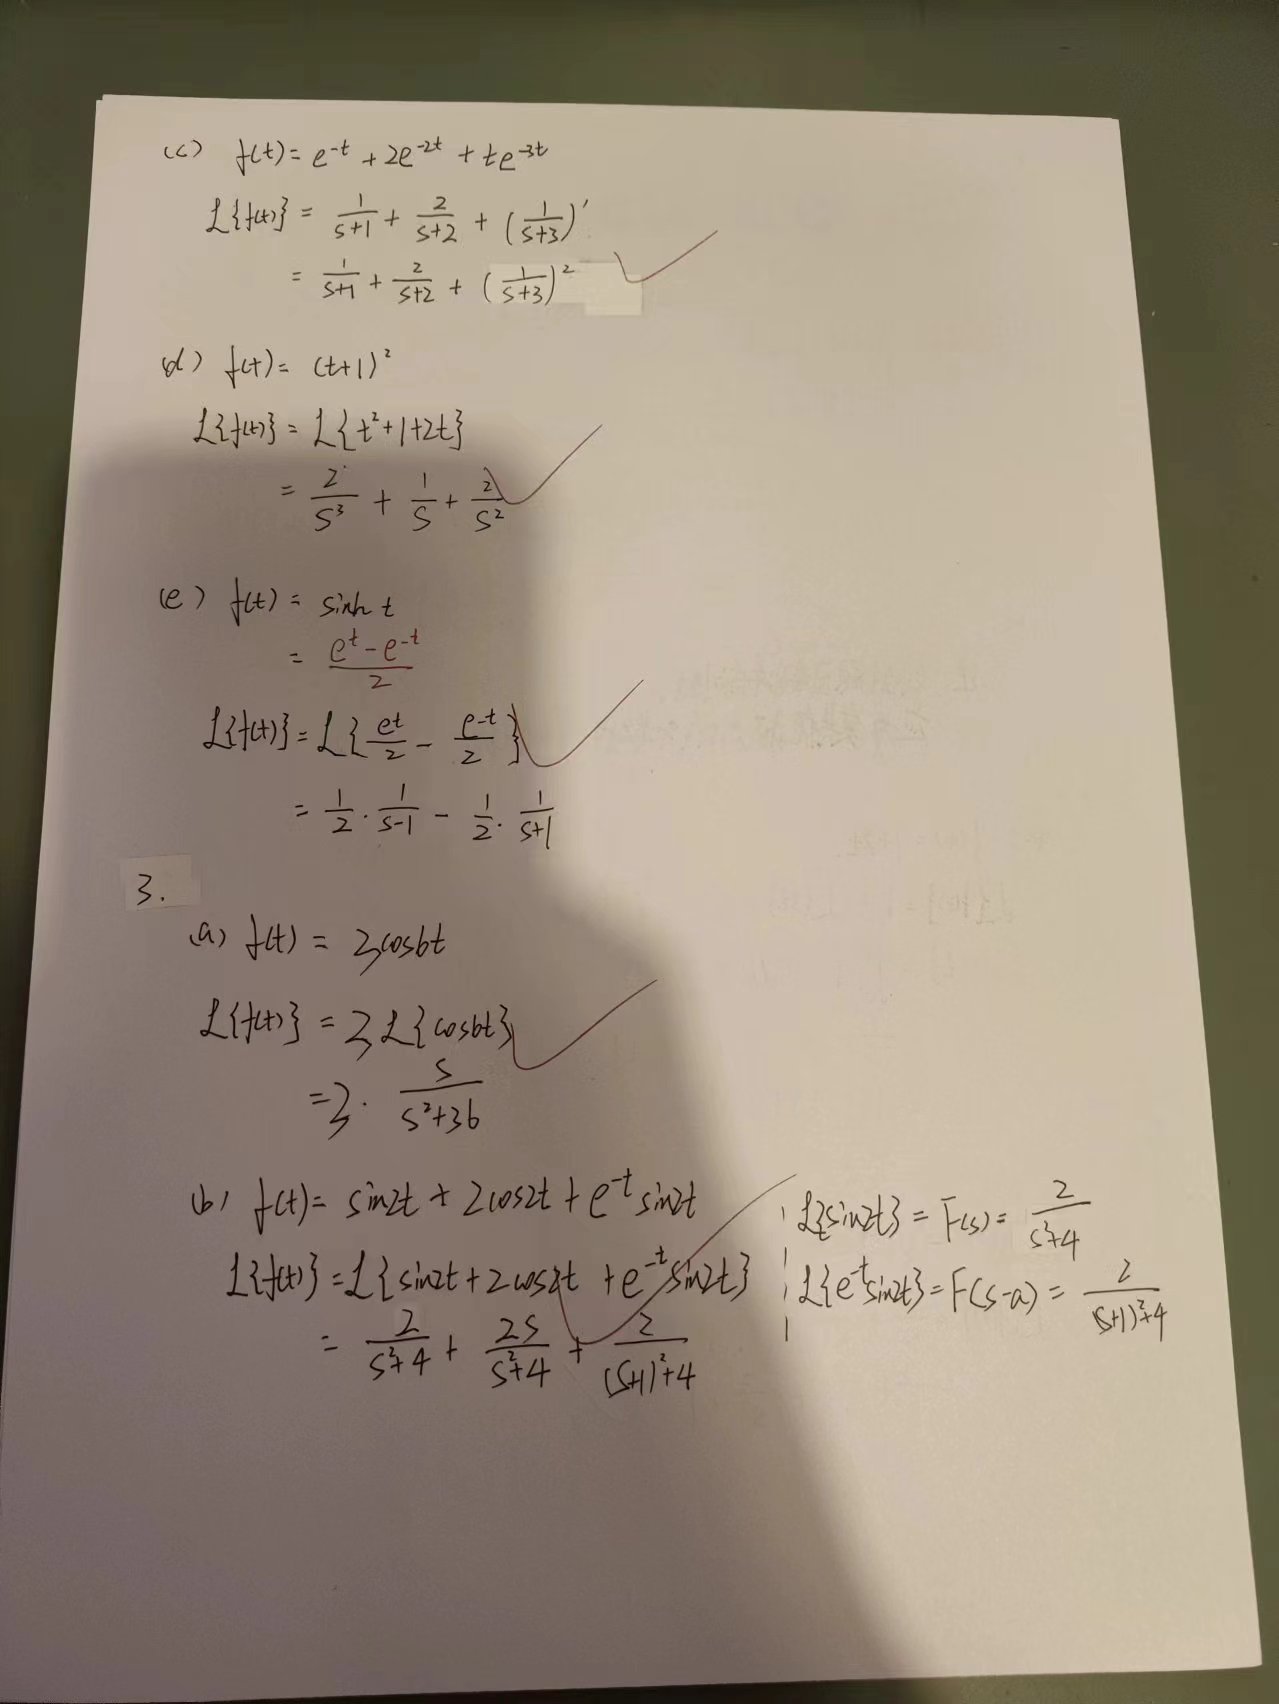 (c) f(t) = e^-t + 2e^-2t + te^-3t
L{f(t)} = 1/(s+1) + 2/(s+2) + (1/(s+3))'
= 1/(s+1) + 2/(s+2) + (1/(s+3))^2
(d) f(t) = (t+1)^2
L{f(t)} = L{t^2+1+2t}
= 2/S^3 + 1/S + 2/S^2
(e) f(t) = sinh t
= (e^t - e^-t)/2
L{f(t)} = L{e^t/2 - e^-t/2}
= 1/2 · 1/(s-1) - 1/2 · 1/(s+1)
3.
(a) f(t) = 3cos6t
L{f(t)} = 3L{cos6t}
= 3 · s/(s^2+36)
(b) f(t) = sin2t + 2cos2t + e^-t sin2t
L{f(t)} = L{sin2t + 2cos2t + e^-t sin2t}
= 2/(s^2+4) + 2s/(s^2+4) + 2/((s+1)^2+4)
L{sin2t} = F(s) = 2/(s^2+4)
L{e^-t sin2t} = F(s-a) = 2/((s+1)^2+4)